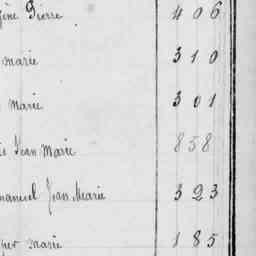 Pierre 406
marie 310
Marie 301
Jean Marie 858
Jean Marie 323
marie 185